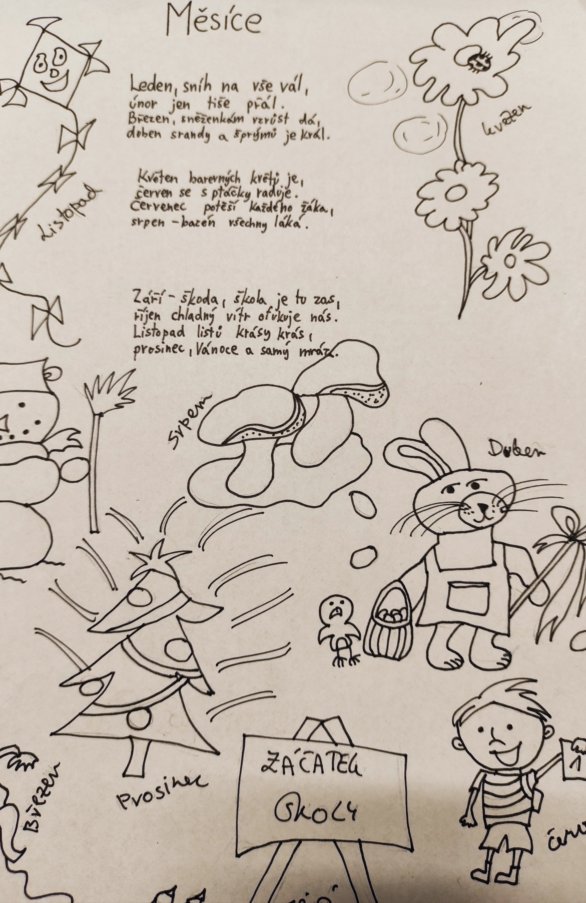 Měsíce
Leden, sníh na vše vál,
únor jen tiše přál.
Březen, sněženkám vzrůst dá,
duben srandy a šprýmů je král.
květen
Květen barevných květů je,
červen se s ptáčky raduje.
Červenec potěší každého žáka,
srpen - bazén všechny láká.
Listopad
Září - škoda, škola je tu zas,
říjen chladný vítr ofukuje nás.
Listopad listů krásy krás,
prosinec, Vánoce a samý mráz.
Srpen
Duben
Prosinec
Březen
ZÁČATEK
ŠKOLY
1